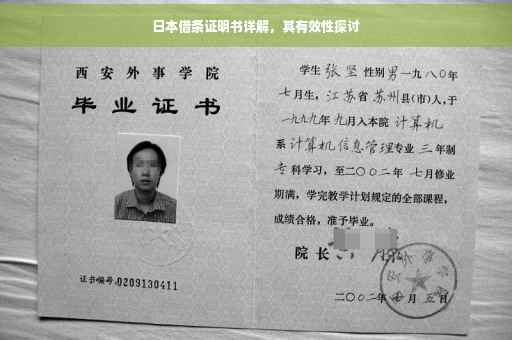 日本借条证明书详解，其有效性探讨
西安外事学院
毕业证书
证书编号:0209130411
学生 张坚 性别 男 一九八〇年
七月生，江苏省 苏州县(市)人，于
一九九九年 九月入本院 计算机
系 计算机信息管理专业 三 年制
专科学习，至二〇〇二年 七月修业
期满，学完教学计划规定的全部课程，
成绩合格，准予毕业。
院长
二〇〇二年 月 五日